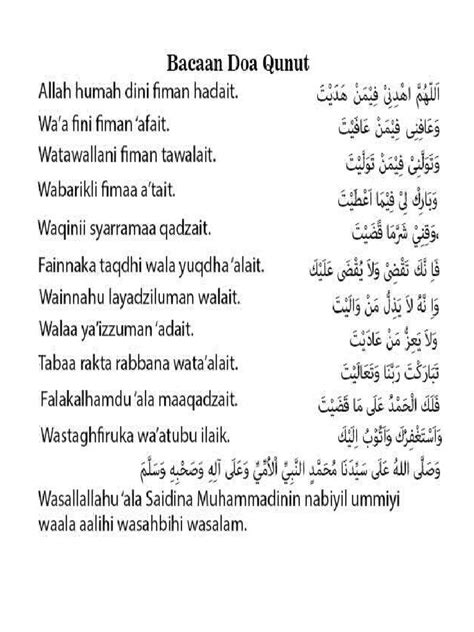 Bacaan Doa Qunut
Allah humah dini fiman hadait. اَللّٰهُمَّ اهْدِنِيْ فِيْمَنْ هَدَيْتَ
Wa'a fini fiman 'afait. وَعَافِنِى فِيْمَنْ عَافَيْتَ
Watawallani fiman tawalait. وَتَوَلَّنِيْ فِيْمَنْ تَوَلَّيْتَ
Wabarikli fimaa a'tait. وَبَارِكْ لِيْ فِيْمَا اَعْطَيْتَ
Waqinii syarramaa qadzait. وَقِنِيْ شَرَّمَا قَضَيْتَ،
Fainnaka taqdhi wala yuqdha 'alait. فَاِ نَّكَ تَقْضِىْ وَلاَ يُقْضَى عَلَيْكَ
Wainnahu layadziluman walait. وَاِ نَّهُ لاَ يَذِلُّ مَنْ وَالَيْتَ
Walaa ya'izzuman 'adait. وَلاَ يَعِزُّ مَنْ عَادَيْتَ
Tabaa rakta rabbana wata'alait. تَبَارَكْتَ رَبَّنَا وَتَعَالَيْتَ
Falakalhamdu 'ala maaqadzait. فَلَكَ الْحَمْدُ عَلَى مَا قَضَيْتَ
Wastaghfiruka wa'atubu ilaik. وَاَسْتَغْفِرُكَ وَاَتُوْبُ اِلَيْكَ
وَصَلَّى اللهُ عَلَى سَيِّدِنَا مُحَمَّدٍ النَّبِيِّ اْلاُمِّيِّ وَعَلَى آلِهِ وَصَحْبِهِ وَسَلَّمَ
Wasallallahu 'ala Saidina Muhammadinin nabiyil ummiyi
waala aalihi wasahbihi wasalam.